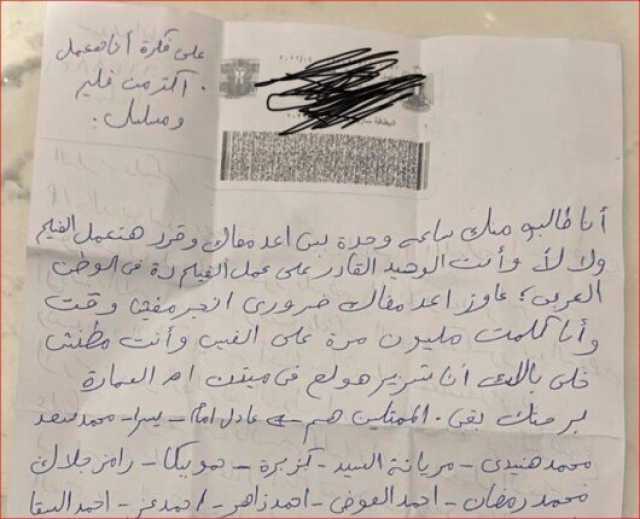 على فكرة أنا هعمل
أكتر من فيلم
ومسلسل.
أنا طالب منك ساعه وحدة بس اعد معاك وقرر هنعمل الفيلم
ولا لأ وأنت الوحيد القادر على عمل الفيلم دة فى الوطن
العربى؛ عاوز اعد معاك ضرورى انجز مفيش وقت
وأنا كلمت مليون مرة على الفيس وأنت مطنش
خلى بالك أنا
فى ميتين ام العمارة
منك بقى. الممثلين هم عادل امام - يسرا - محمد سعد
محمد هنيدى - مريانة السيد - كزبرة - حمو بيكا - رامز جلال
محمد رمضان - احمد العوضى - احمد زاهر - احمد عز - احمد السقا